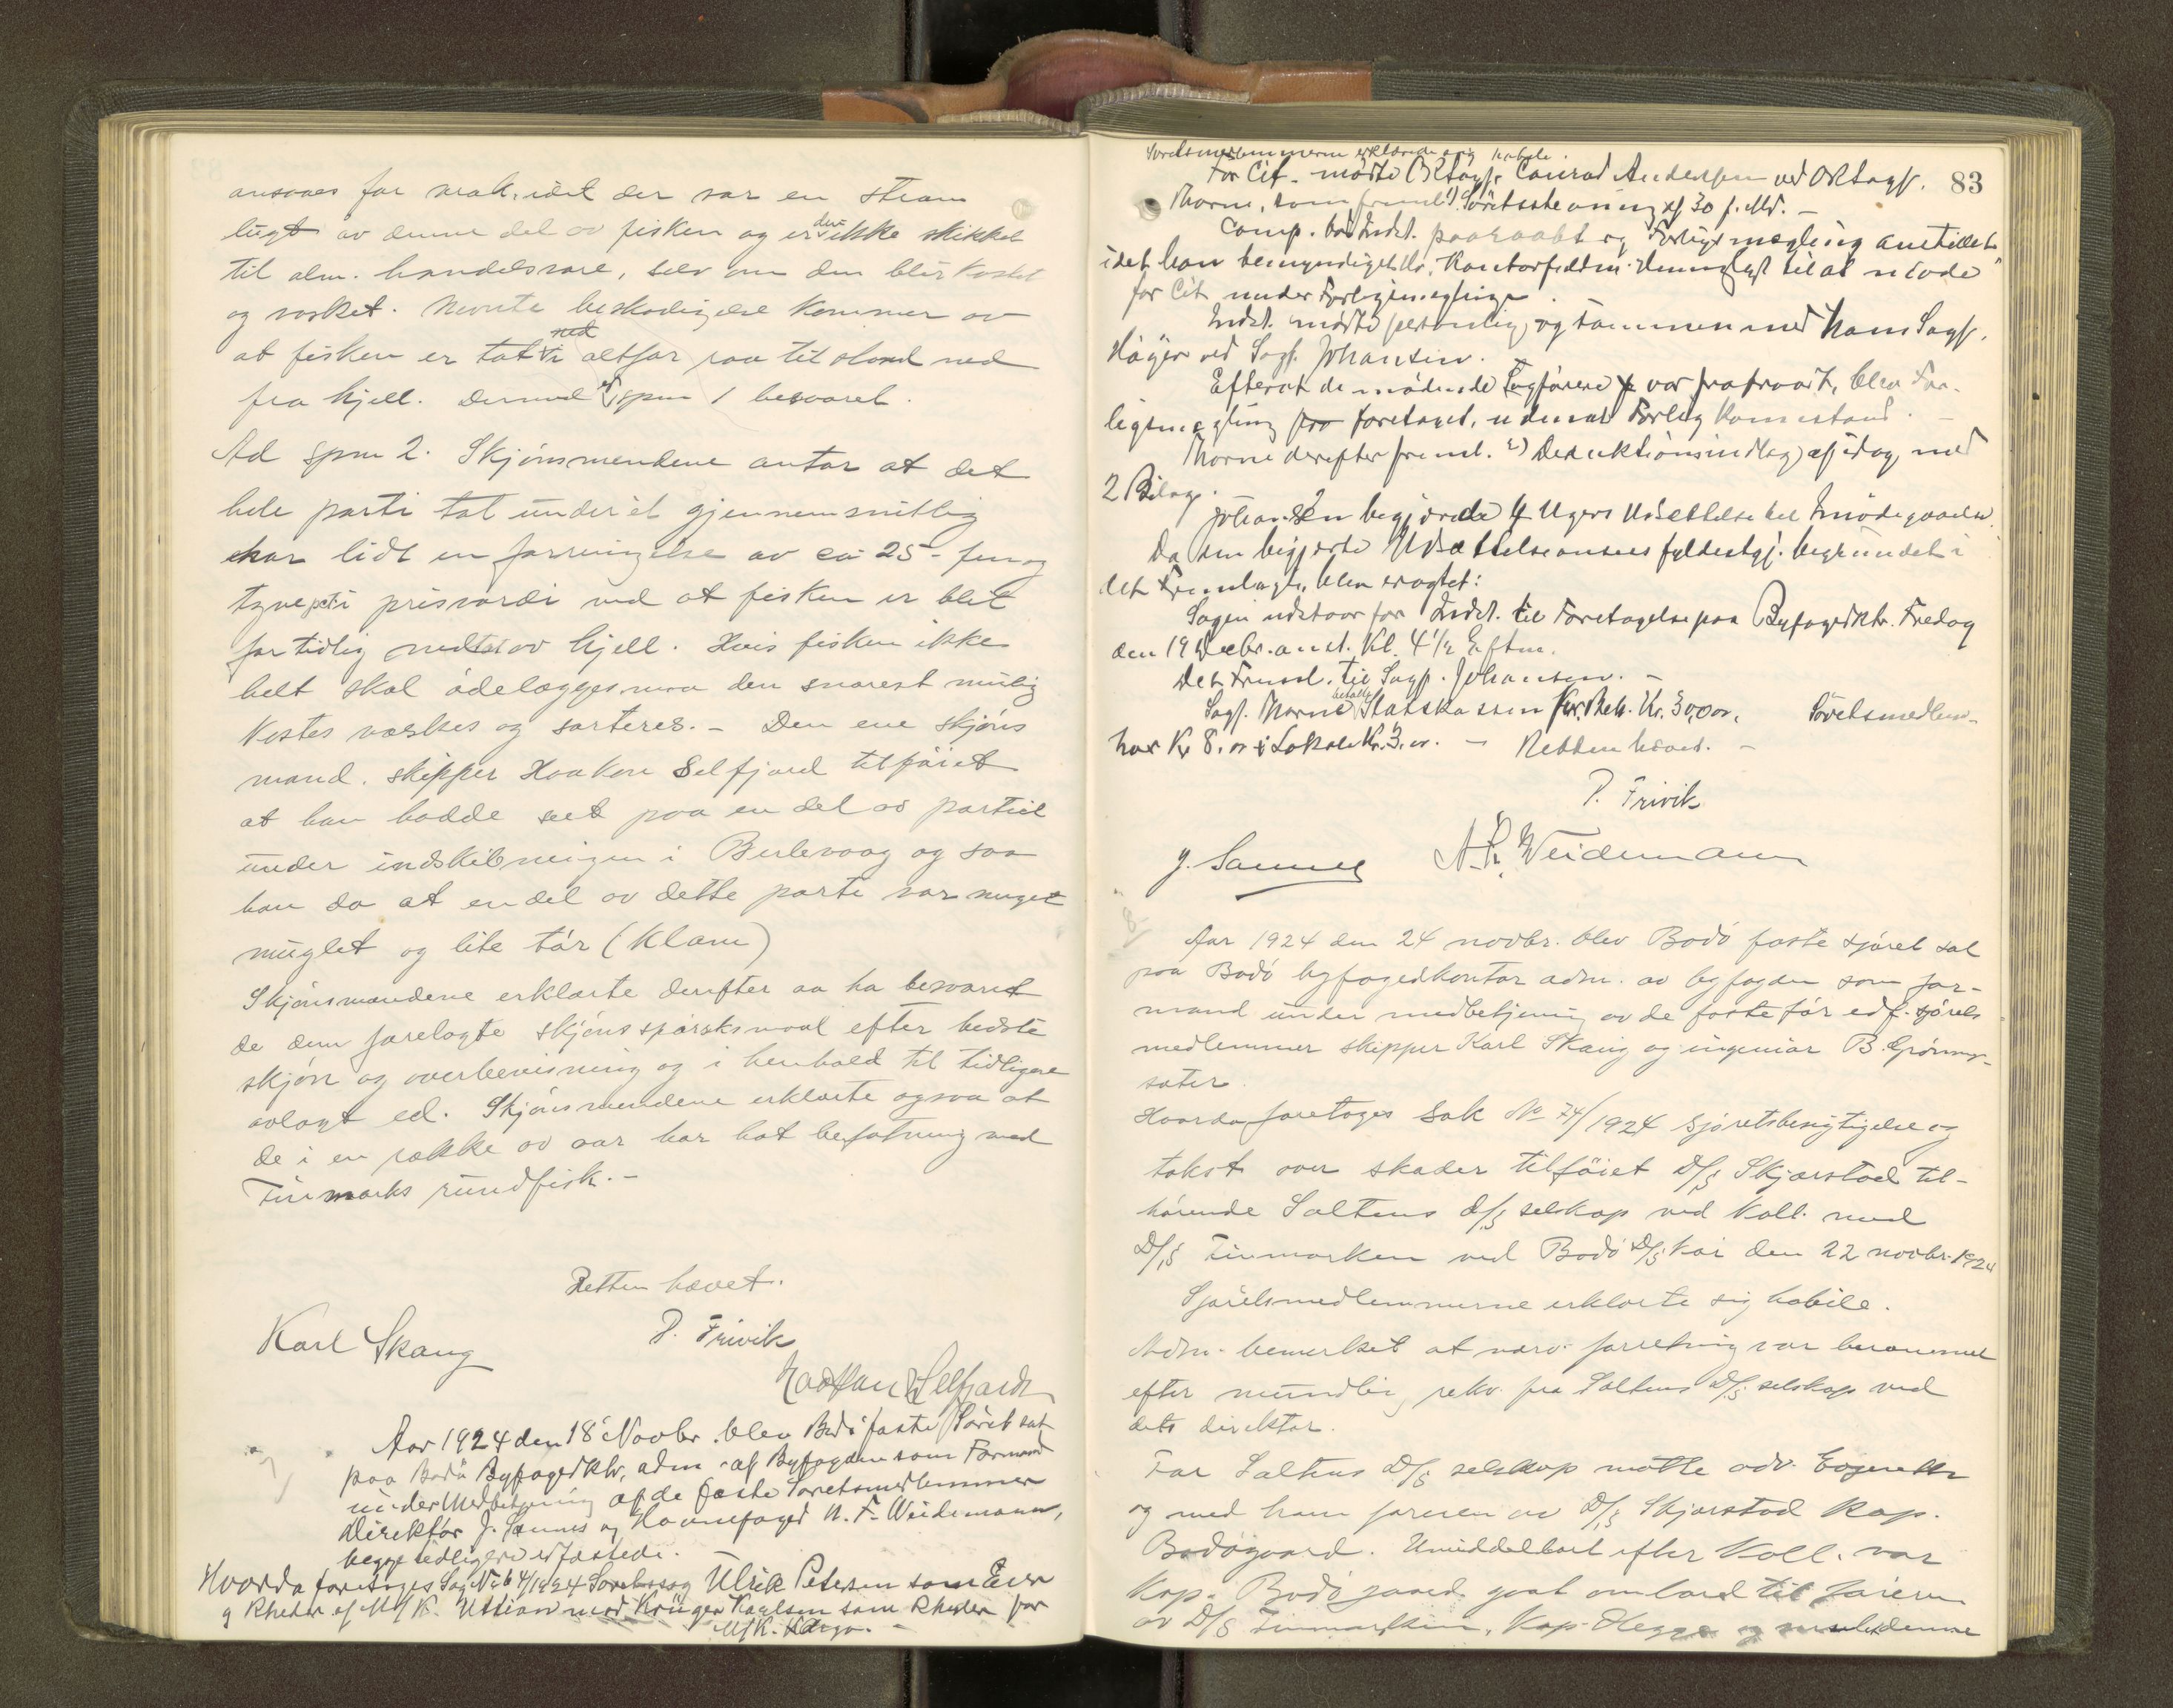 ansaaes for vrak, idet der var en stram
lugt av denne del av fisken og er den ikke skikket
til alm. handelsvare, selv om den blir kostet
og vasket. Nevnte beskadigelse kommer av
at fisken er tat ned i altfor raa tilstand ned
fra hjell. Dermed er spm 1 besvaret.
Ad spm 2. Skjönsmendene antar at det
hele parti tat under ét gjennemsnitlig
har lidt en forringelse av ca 25 - fem og
tyve pct i prisverdi ved at fisken er blit
for tidlig nedtat av hjell. Hvis fisken ikke
helt skal ödelægges maa den snarest mulig
kostes vaskes og sorteres. - Den ene skjöns
mand, skipper Haakon Selfjord tilföiet
at han hadde set paa en del av partiet
under indskibningen i Berlevaag og saa
han da at en del av dette parti var meget
muglet og lite tör (klam)
Skjönsmændene erklærte derefter aa ha besvaret
de dem forelagte skjönsspörsksmaal efter bedste
skjön og overbevisning og i henhold til tidligere
avlagt ed. Skjönsmendene erklærte ogsaa at
de i en række av aar har hat befatning med
Finmarks rundfisk. -
Retten hævet.
Karl Skaug
P. Frivik
Haakon Selfjord
Aar 1924 den 18 Novbr. blev Bodö faste Söret sat
paa Bodö Byfogedktr, adm. af Byfogden som Formand
under Medbetjening af de faste Söretsmedlemmer
Direktör J. Sannes og Havnefoged N. F. Weidemann,
begge tidligere edfæstede.
Hvorda foretoges Sag No 64/1924 Söretssag Ulrik Petersen som Eier
og Rheder af M/K. mod Krüger Karlsen som Rheder for
M/K.
83
Söretsmedlemmerne erklærede sig habile.
For Cit. mödte ORtssagf. Conrad Andersen ved ORtsagf.
Thorne, som freml. 1) Söretsstevning af 30 f. Md. -
Comp. bad Indst. paaraabt og Forligsmægling anstillet
idet han bemyndiget Hr. Kontorfuldm. til at möde
for Cit. under Forligsmeglingen.
Indst. mödte personlig og sammen med ham Sagf.
Höyer ved Sagf. Johansen.
Efterat de mödende Sagförere var fratraadt, blev For-
ligsmægling foretaget, uden at Forlig kom istand. -
Thorne derefter freml. 2) Deduktionsindlæg af idag, med
2 Bilag.
Johansen begjærede 4 Ugers Udsettelse til Imödegaaelse.
Da den begjærte Udsættelse ansees fyldestgj. begrundet i
det Fremlagte, blev eragtet:
Sagen udstaar for Indst. til Foretagelse paa Byfogedktr. Fredag
den 19 Decbr. anst. Kl. 4 1/2 Eftm.
Det Freml. til Sagf. Johansen. -
Sagf. Thorne betalte Statskassen for Beh. Kr. 30,00. Söretsmedlem-
har Kr 8. og Lokale Kr. 3. - Retten hævet. -
P. Frivik
J. Sannes
N. F. Weidemann
Aar 1924 den 24 novbr. blev Bodö faste sjöret sat
paa Bodö byfogedkontor adm. av byfogden som for-
mand under medbetjening av de faste för edf. sjörets
medlemmer skipper Karl Skaug og ingeniör B. Grönning-
sæter.
Hvorda foretoges Sak No 74/1924 sjöretsbesigtigelse og
takst over skader tilföiet D/S Skjerstad til-
hörende Saltens d/s selskap ved koll. med
D/S Finmarken ved Bodö D/S kai den 22 novbr. 1924
Sjöretsmedlemmerne erklærte sig habile.
Adm. bemerket at nærv. forretning var berammet
efter mundlig rekv. fra Saltens D/S selskap ved
dets direktör.
For Saltens D/S selskap mötte adv.
og med ham föreren av D/S Skjerstad Kap.
Bodøgaard. Umiddelbart efter koll. var
Kap. Bodøgaard gaat ombord til föreren
av D/S Finmarken, Kap. Hegge og